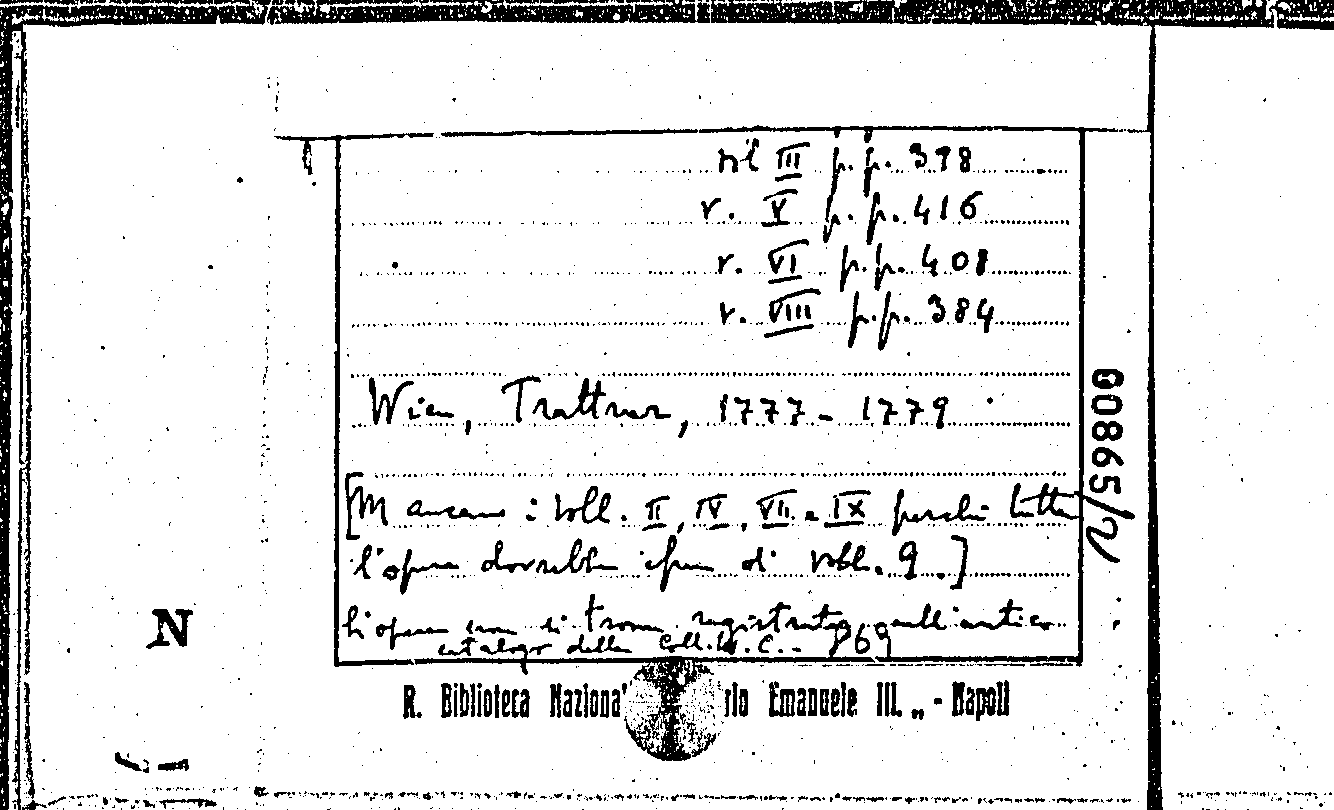 vol III p.p. 398
v. V p.p. 416
v. VI p.p. 408
v. VIII p.p. 384
Wien, Trattner, 1777-1779
[Mancano i voll. II, IV, VII e IX perchè tutta
l'opera dovrebbe essere di voll. 9.]
L'opera non si trova registrata nell'antico
catalogo della Coll.
00865/2
N
R. Biblioteca Emanuele III. „ - Napoli